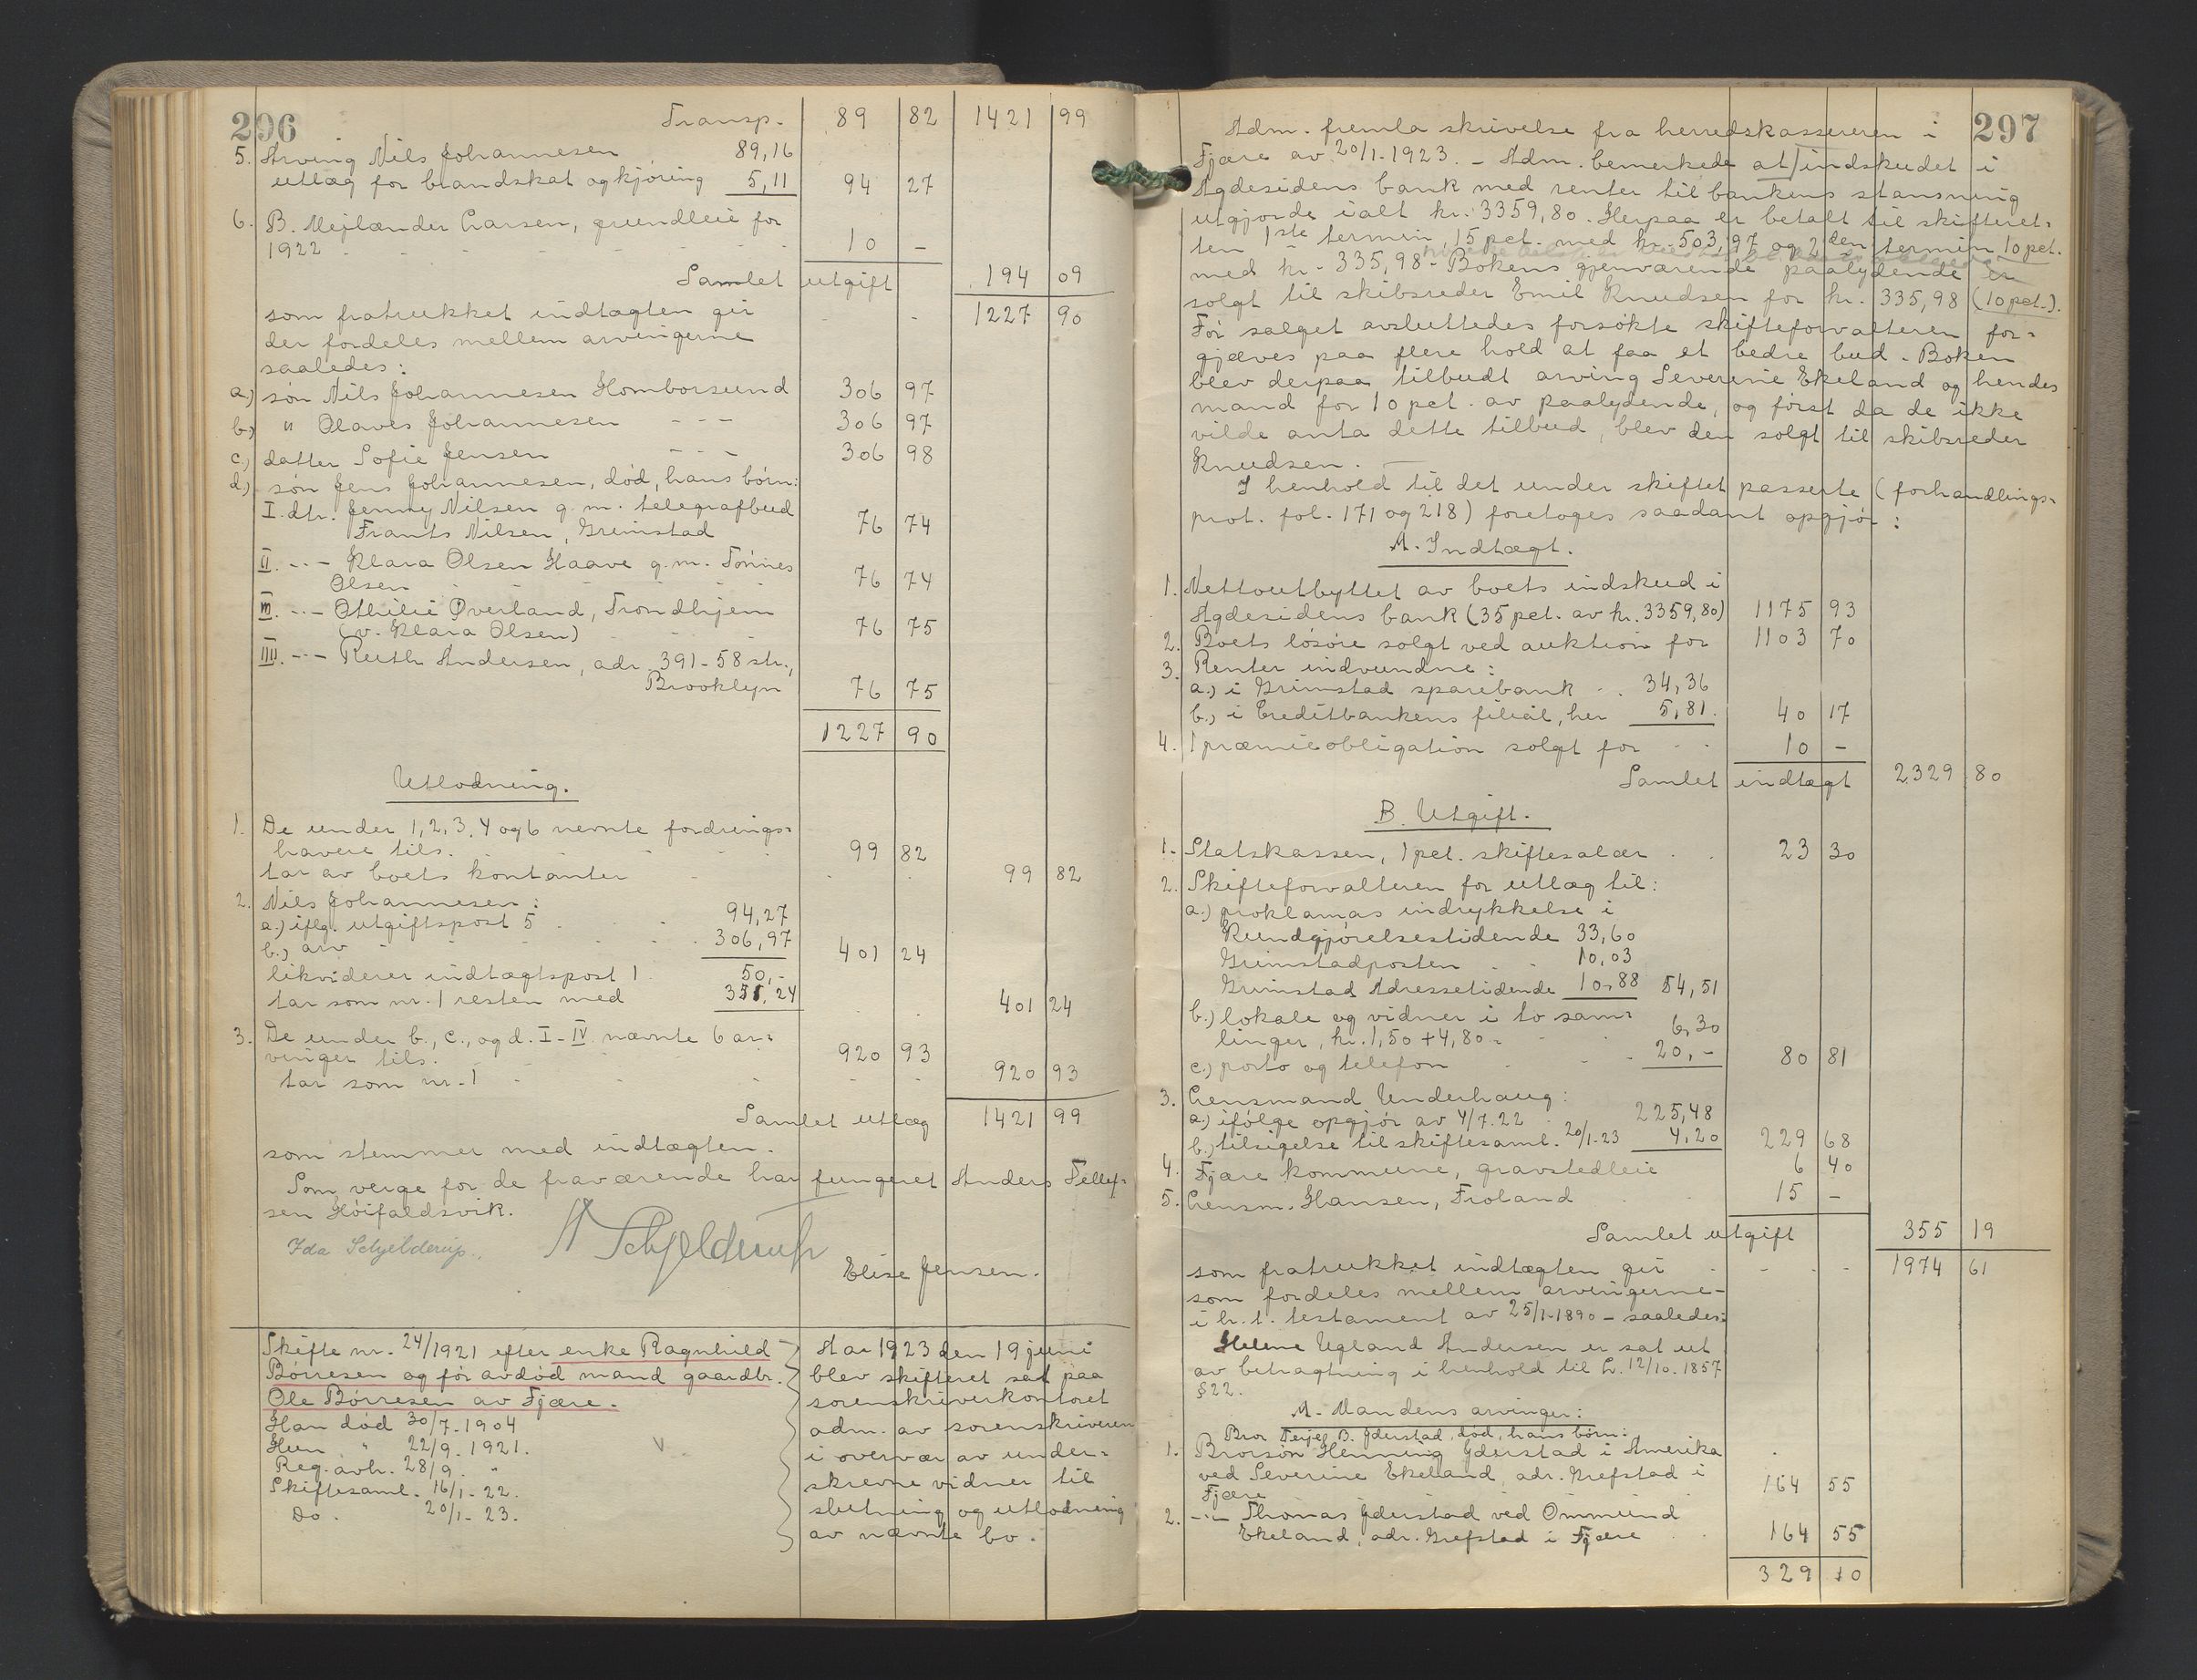 296
Transp. 89 82 1421 99
5. Arving Nils Johannesen 89,16
utlæg for brandskat og kjöring 5,11 94 27
6. B. Mejlænder Larsen, grundleie for
1922 - - - 10 -
Samlet utgift 194 09
som fratrukket indtægten gir - - 1227 90
der fordeles mellem arvingerne
saaledes:
a.) sön Nils Johannesen Homborsund 306 97
b.) " Olaves Johannesen - - - 306 97
c.) datter Sofie Jensen - - - 306 98
d.) sön Jens Johannesen, död, hans börn:
I. dtr. Jenny Nilsen g. m. telegrafbud
Frants Nilsen, Grimstad 76 74
II. -"- Klara Olsen Haave g. m. Tönnes
Olsen 76 74
III. -"- Othilie Øverland, Trondhjem
(v. Klara Olsen) 76 75
IIII. -"- Ruth Andersen, adr. 391-58 str.,
Brooklyn 76 75
1227 90
Utlodning.
1. De under 1, 2, 3, 4 og 6 nevnte fordrings=
havere tils. 99 82
tar av boets kontanter 99 82
2. Nils Johannesen:
a.) iflg. utgiftspost 5 94,27
b.) arv 306,97 401 24
likviderer indtægtspost 1 50,-
tar som nr. 1 resten med 351,24 401 24
3. De under b., c., og d. I-IV nævnte 6 ar=
vinger tils. 920 93
tar som nr. 1 920 93
Samlet utlæg 1421 99
som stemmer med indtægten.
Som verge for de fraværende har fungeret Anders Tellef=
sen Höifaldsvik.
Ida Schjelderup. A Schjelderup
Elise Jensen.
Skifte nr. 24/1921 efter enke Ragnhild
Börresen og för avdöd mand gaardbr.
Ole Börresen av Fjære.
Han död 30/7-1904
Hun " 22/9-1921.
Reg. avh. 28/9 "
Skiftesaml. 16/1-22.
Do. 20/1-23.
Aar 1923 den 19 juni
blev skifteret sat paa
sorenskriverkontoret
adm. av sorenskriveren
i overvær av under=
skrevne vidner til
slutning og utlodning
av nævnte bo.
297
Adm. fremla skrivelse fra herredskassereren i
Fjære av 20/1-1923. - Adm. bemerkede at indskudet i
Agdesidens bank med renter til bankens stansning
utgjorde ialt kr. 3359,80. Herpaa er betalt til skifteret=
ten 1ste termin, 15 pct. med kr. 503,97 og 2den termin 10 pct.
med kr. 335,98 - Bokens gjenværende paalydende er
solgt til skibsreder Emil Knudsen for kr. 335,98 (10 pct.).
För salget avsluttedes forsökte skifteforvalteren for=
gjæves paa flere hold at faa et bedre bud. Boken
blev derpaa tilbudt arving Severine Ekeland og hendes
mand for 10 pct. av paalydende, og först da de ikke
vilde anta dette tilbud, blev den solgt til skibsreder
Knudsen. -
I henhold til det under skiftet passerte (forhandlings=
prot. fol. 171 og 218) foretoges saadant opgjör:
A. Indtægt.
1. Nettoutbyttet av boets indskud i
Agdesidens bank (35 pct. av kr. 3359,80) 1175 93
2. Boets lösöre solgt ved auktion for 1103 70
3. Renter indvundne:
a.) i Grimstad sparebank 34,36
b.) i Creditbankens filial, her 5,81 40 17
4. 1 præmieobligation solgt for 10 -
Samlet indtægt 2329 80
B. Utgift.
1. Statskassen, 1 pct. skiftesalær 23 30
2. Skifteforvalteren for utlæg til:
a.) proklamas indrykkelse i
Kundgjörelsestidende 33,60
Grimstadposten 10,03
Grimstad Adressetidende 10,88 54,51
b.) lokale og vidner i to sam=
linger, kr. 1,50 + 4,80 = 6,30
c.) porto og telefon 20,- 80 81
3. Lensmand Underhaug:
a.) ifölge opgjör av 4/7.22 225,48
b.) tilsigelse til skiftesaml. 20/1-23 4,20 229 68
4. Fjære kommune, gravstedleie 6 40
5. Lensm. Hansen, Froland 15 -
Samlet utgift 355 19
som fratrukket indtægten gir 1974 61
som fordeles mellem arvingerne -
i h. t. testament av 25/1-1890 - saaledes:
Helene Ugland Andersen er sat ut
av betragtning i henhold til L. 12/10.1857
§ 22.
A. Mandens arvinger:
Bror Terjej B. Yderstad, död, hans börn:
1. Brorsön Henning Yderstad i Amerika
ved Severine Ekeland, adr. Grefstad i
Fjære 164 55
2. -"- Thomas Yderstad ved Ommund
Ekeland, adr. Grefstad i Fjære 164 55
329 10